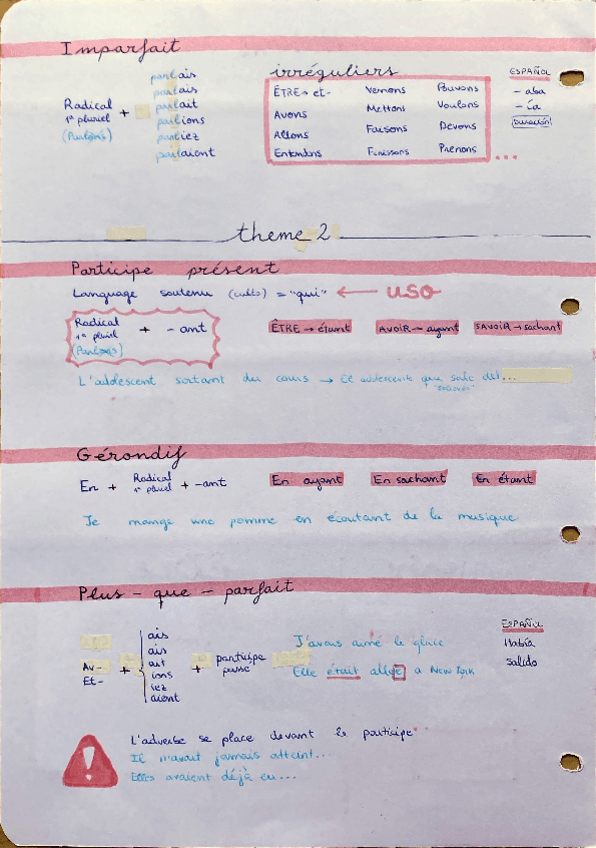 Imparfait
Radical
1º pluriel
(Parlons)
+
parlais
parlais
parlait
parlions
parliez
parlaient
irréguliers
ÊTRE → ét- Venons Pouvons
Avons Mettons Voulons
Allons Faisons Devons
Entendons Finissons Prenons
...
ESPAÑOL
- aba
- ía
Duración!
theme 2
Participe présent
Language soutenu (culto) = "qui" ← USO
Radical
1º pluriel
(Parlons)
+ - ant
ÊTRE → étant AVOIR → ayant SAVOIR → sachant
L'adolescent sortant du cours → El adolescente que sale del...
Gérondif
En + Radical 1º pluriel + -ant
En ayant En sachant En étant
Je mange une pomme en écoutant de la musique
Plus - que - parfait
Av-
Et-
+
ais
ais
ait
ions
iez
aient
+ participe
passé
J'avais aimé le génie
Elle était allée a New York
ESPAÑOL
Había
salido
L'adverbe se place devant le participe
Il n'avait jamais atteint...
Elles avaient déjà eu...